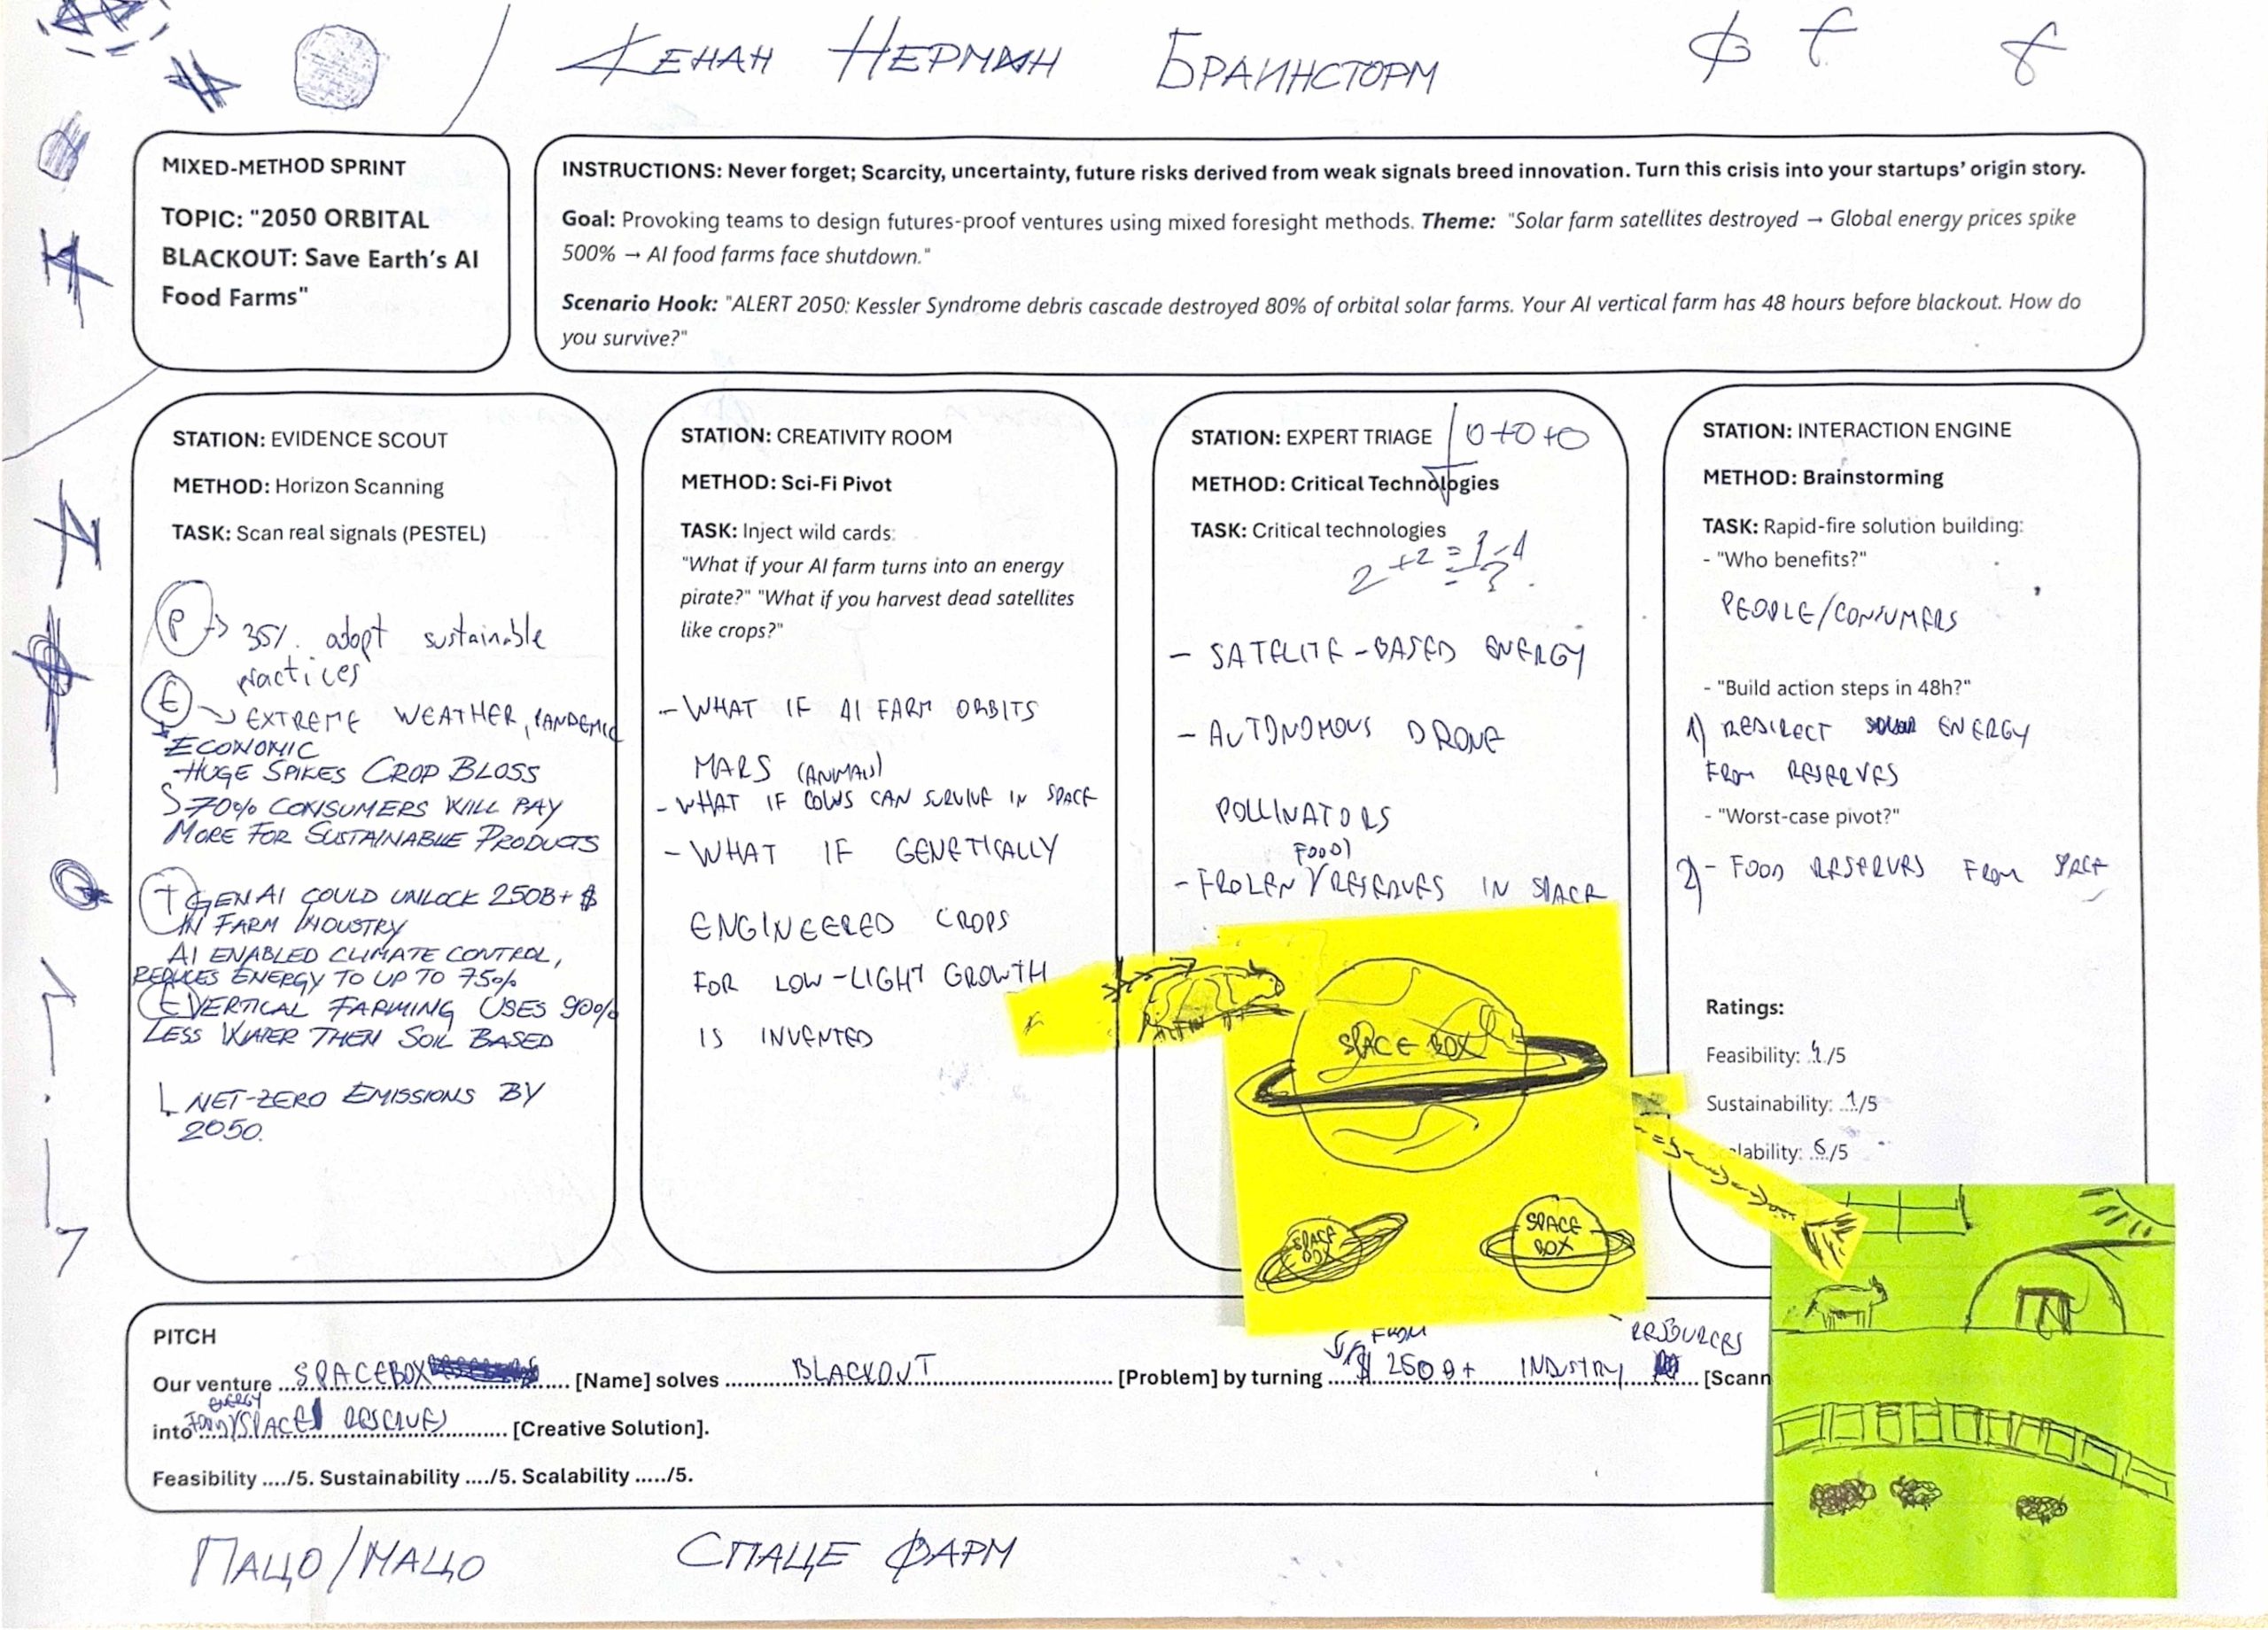 КЕНАН НЕРМИН БРАИНСТОРМ
MIXED-METHOD SPRINT
TOPIC: "2050 ORBITAL
BLACKOUT: Save Earth's AI
Food Farms"
INSTRUCTIONS: Never forget; Scarcity, uncertainty, future risks derived from weak signals breed innovation. Turn this crisis into your startups' origin story.
Goal: Provoking teams to design futures-proof ventures using mixed foresight methods. Theme: "Solar farm satellites destroyed → Global energy prices spike
500% → AI food farms face shutdown."
Scenario Hook: "ALERT 2050: Kessler Syndrome debris cascade destroyed 80% of orbital solar farms. Your AI vertical farm has 48 hours before blackout. How do
you survive?"
STATION: EVIDENCE SCOUT
METHOD: Horizon Scanning
TASK: Scan real signals (PESTEL)
P → 35%. adopt sustainable
practices
E → EXTREME WEATHER, PANDEMIC
ECONOMIC
-HUGE SPIKES CROP BLOSS
S-70% CONSUMERS WILL PAY
MORE FOR SUSTAINABLE PRODUCTS
T GEN AI COULD UNLOCK 250B+ $
IN FARM INDUSTRY
AI ENABLED CLIMATE CONTROL,
REDUCES ENERGY TO UP TO 75%
E VERTICAL FARMING USES 90%
LESS WATER THEN SOIL BASED
L NET-ZERO EMISSIONS BY
2050.
STATION: CREATIVITY ROOM
METHOD: Sci-Fi Pivot
TASK: Inject wild cards:
"What if your AI farm turns into an energy
pirate?" "What if you harvest dead satellites
like crops?"
- WHAT IF AI FARM ORBITS
MARS (ANIMALS)
- WHAT IF COWS CAN SURVIVE IN SPACE
- WHAT IF GENETICALLY
ENGINEERED CROPS
FOR LOW-LIGHT GROWTH
IS INVENTED
STATION: EXPERT TRIAGE
0+0+0
METHOD: Critical Technologies
TASK: Critical technologies
- SATELITE-BASED ENERGY
- AUTONOMOUS DRONE
POLLINATORS
FOOD
- FROZEN RESERVES IN SPACE
SPACE BOX
SPACE
BOX
SPACE
BOX
STATION: INTERACTION ENGINE
METHOD: Brainstorming
TASK: Rapid-fire solution building:
- "Who benefits?"
PEOPLE/CONSUMERS
- "Build action steps in 48h?"
1) REDIRECT ENERGY
FROM RESERVES
- "Worst-case pivot?"
2) - FOOD RESERVES FROM SPACE
Ratings:
Feasibility: /5
Sustainability: 1/5
Scalability: /5
PITCH
FROM RESOURCES
Our venture SPACEBOX [Name] solves BLACKOUT [Problem] by turning $ 250B+ INDUSTRY [Scann
ENERGY
into FOOD/SPACE RESERVES [Creative Solution].
Feasibility ..../5. Sustainability ..../5. Scalability ...../5.
ПАЦО/МАЦО СПАЦЕ ФАРМ